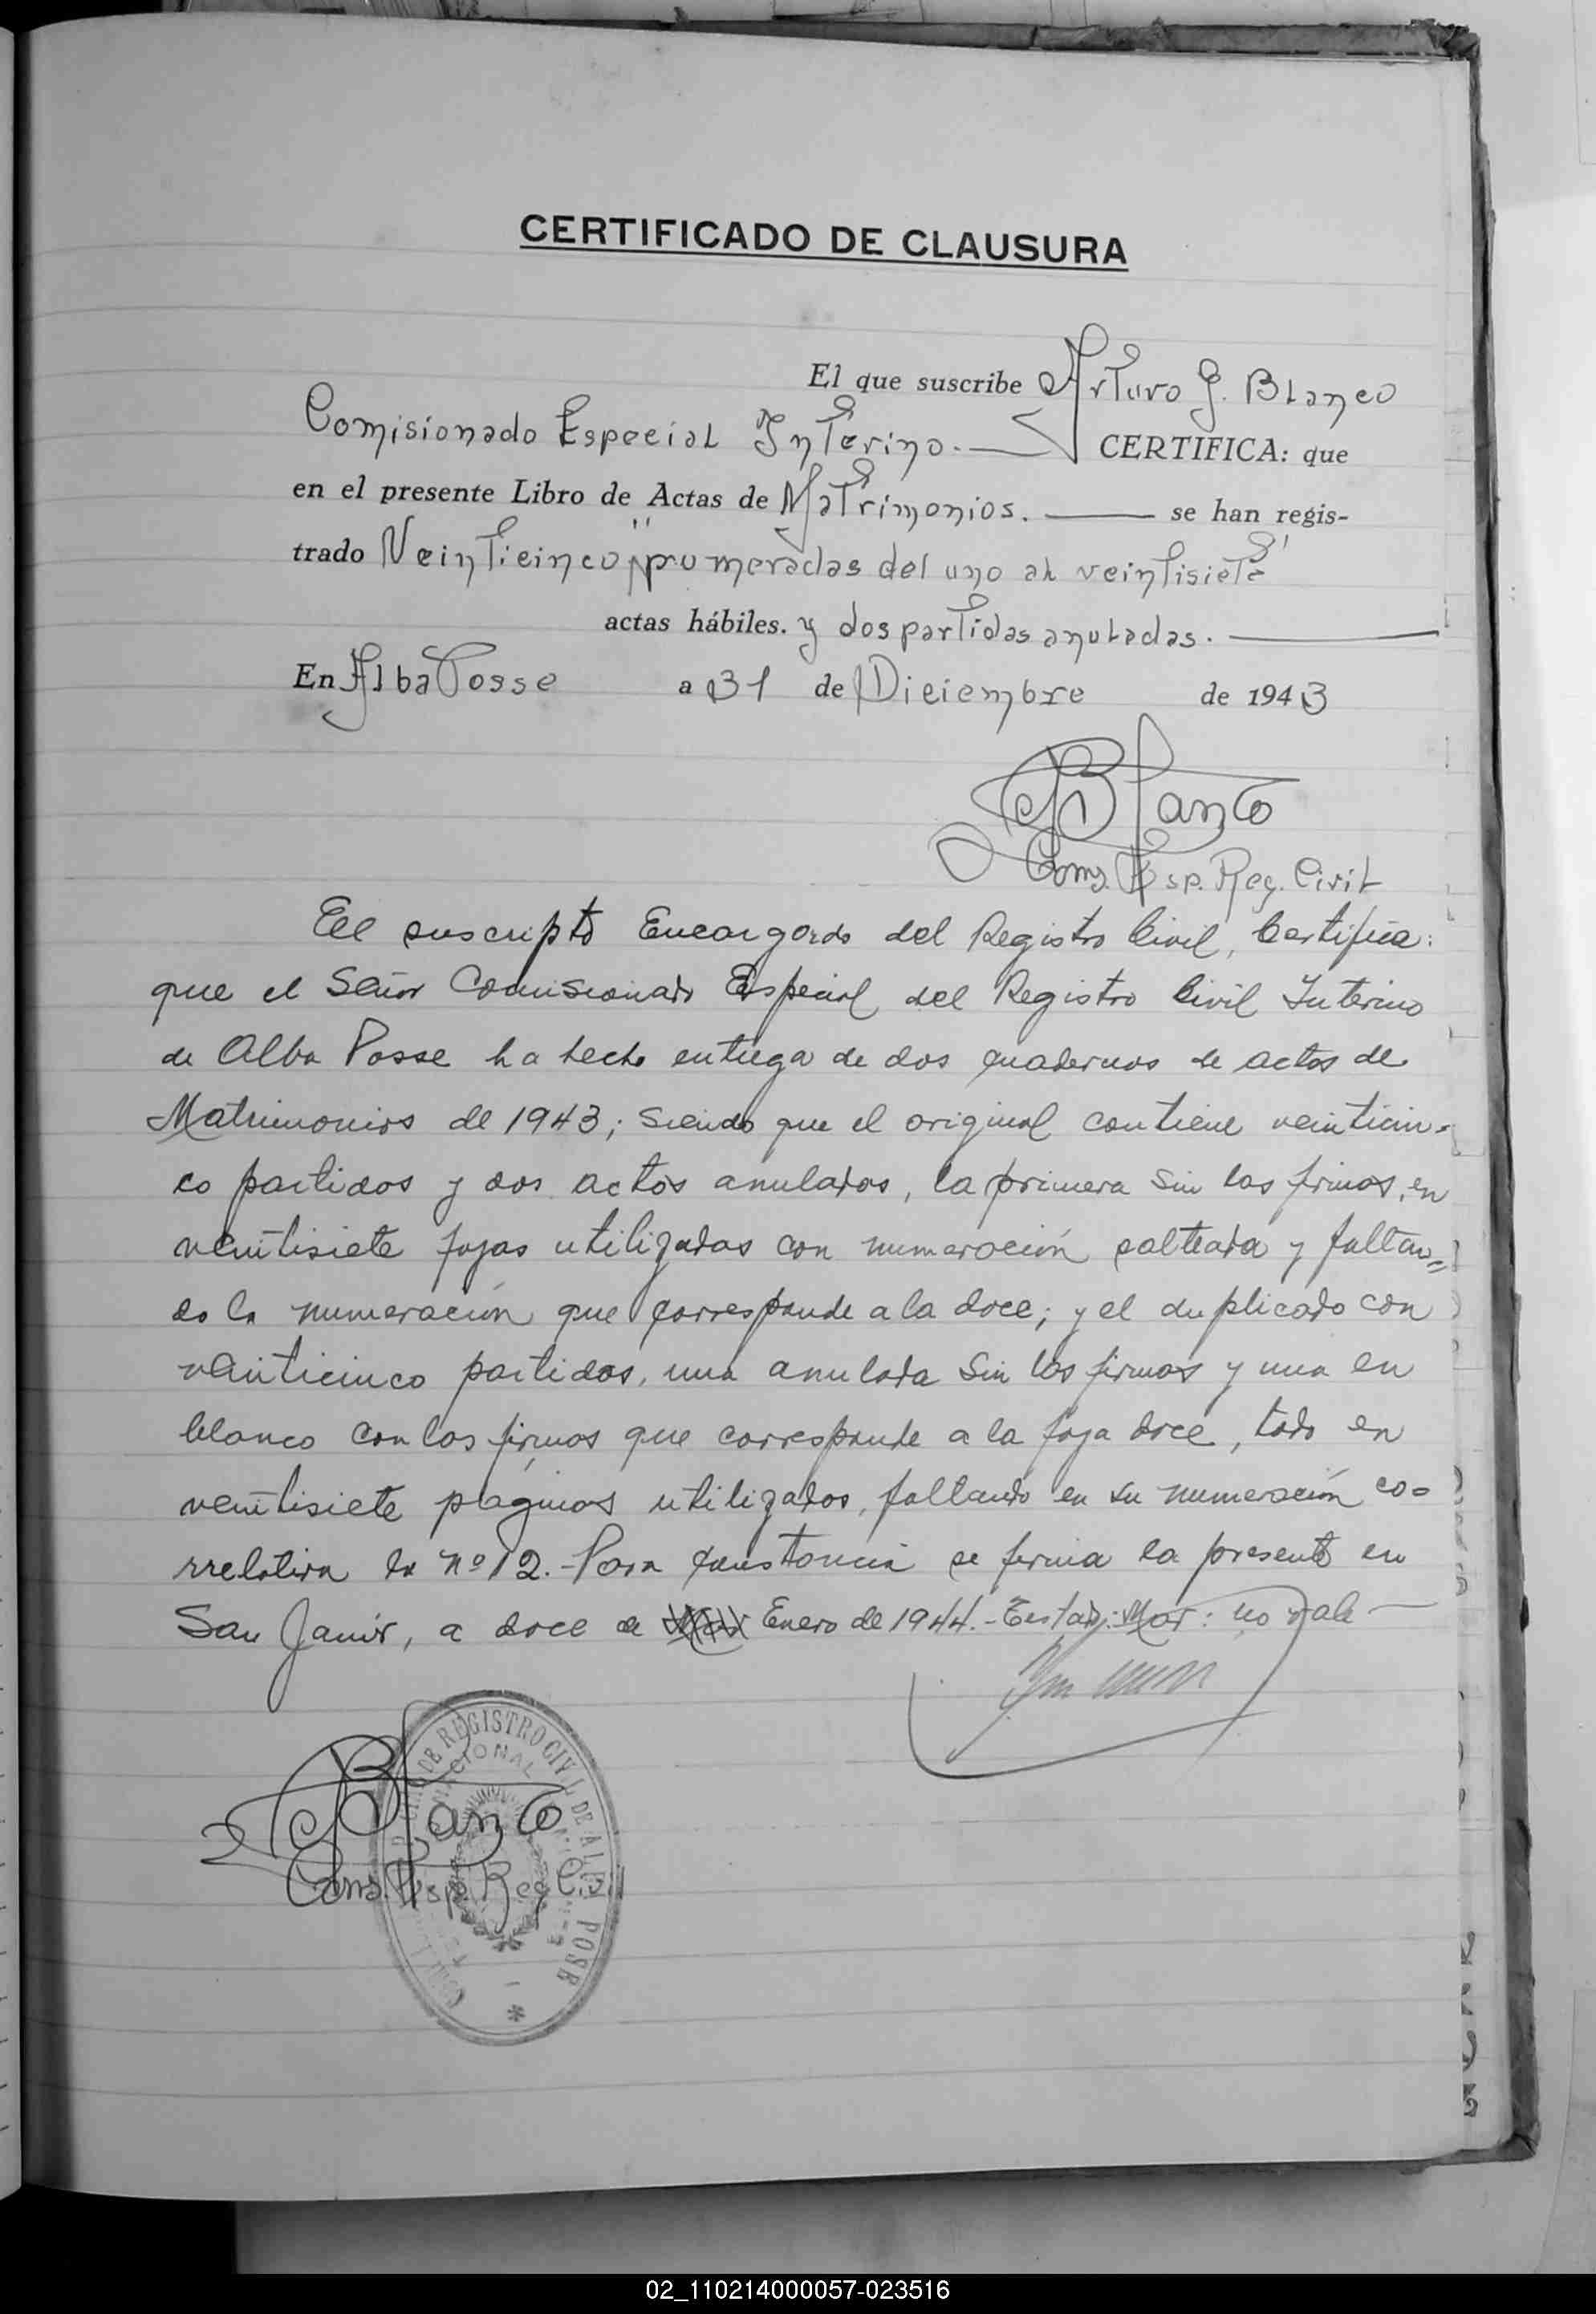 CERTIFICADO DE CLAUSURA
El que suscribe Arturo G. Blanco
Comisionado Especial Interino. CERTIFICA: que
en el presente Libro de Actas de Matrimonios. se han regis-
trado Veinticinco "numeradas del uno al veintisiete"
actas hábiles. y dos partidas anuladas.
En Alba Posse a 31 de Diciembre de 1943
Blanco
Coms. Esp. Reg. Civil
El suscripto Encargado del Registro Civil, Certifica:
que el Señor Comisionado Especial del Registro Civil Interino
de Alba Posse ha hecho entrega de dos cuadernos de actas de
Matrimonios de 1943; siendo que el original contiene veinticin-
co partidas y dos actas anuladas, la primera sin las firmas, en
veintisiete fojas utilizadas con numeración salteada y faltan=
do la numeración que corresponde a la doce; y el duplicado con
veinticinco partidas, una anulada sin las firmas y una en
blanco con las firmas que corresponde a la foja doce, todo en
veintisiete páginas utilizadas, faltando en su numeración co=
rrelativa la nº 12.- Para constancia se firma la presente en
San Javier, a doce de Enero de 1944.- Testad: Mar: no vale
Blanco
Coms. Esp. Reg. Civil
DE REGISTRO CIVIL DE ALBA POSE
NACIONAL
02_110214000057-023516